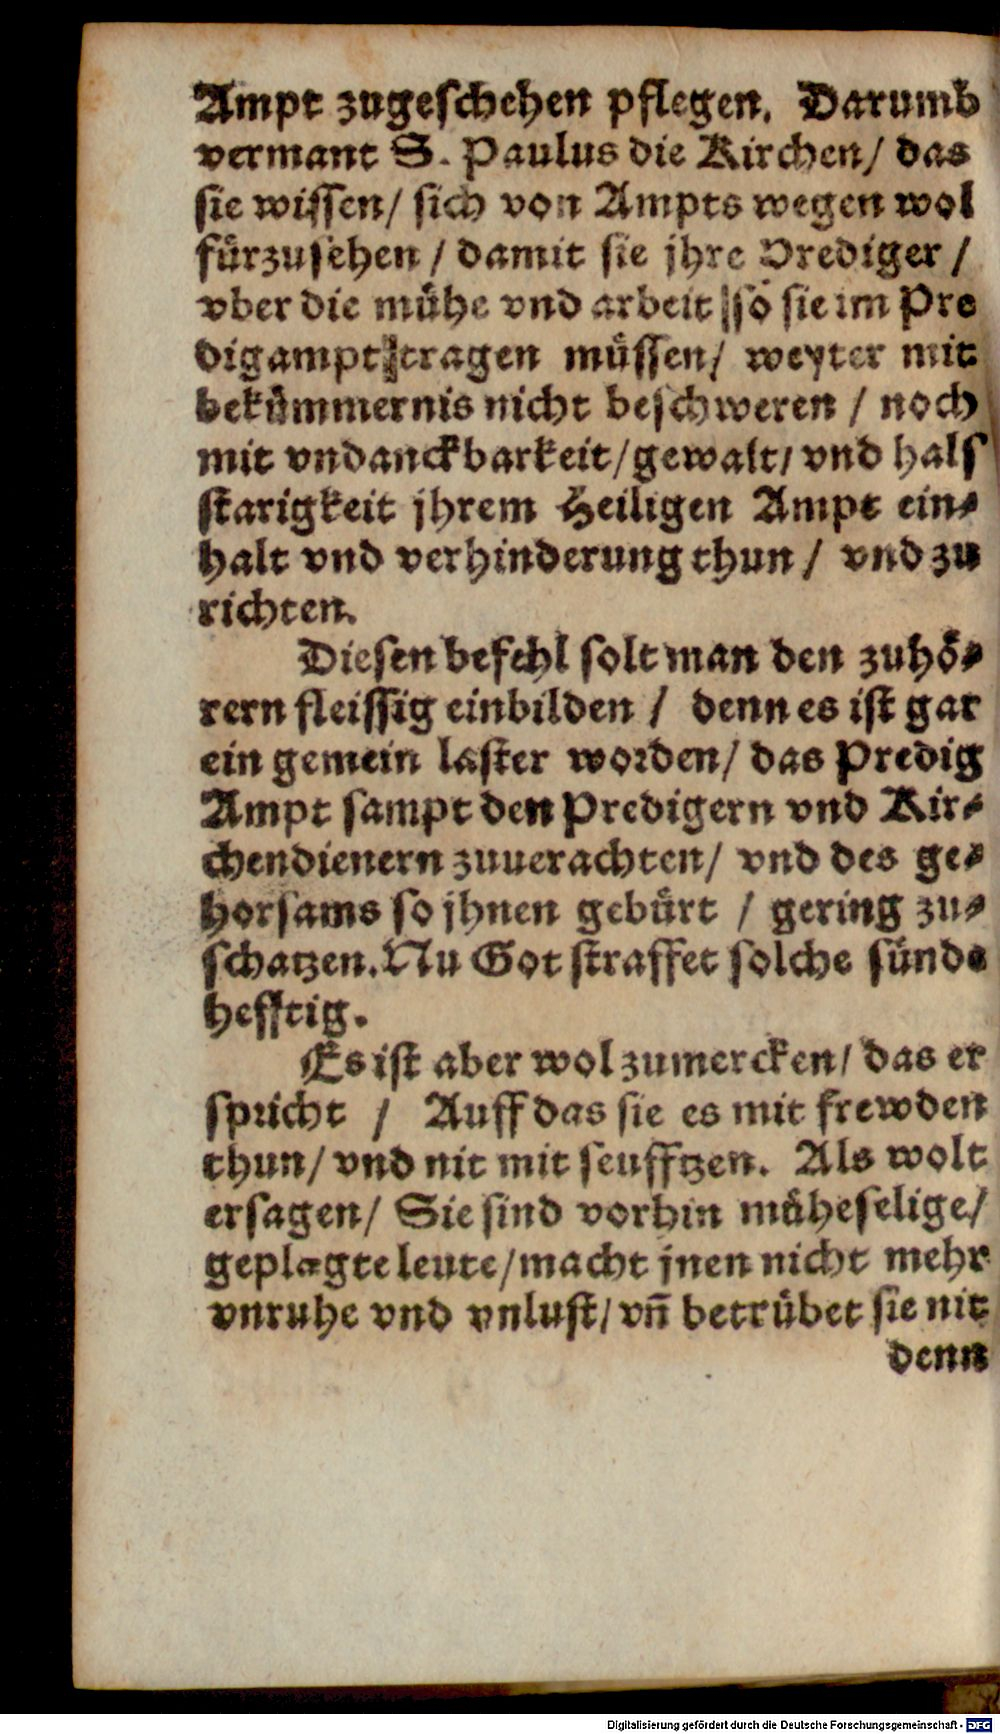 Ampt zugeschehen pflegen. Darumb
vermant S. Paulus die Kirchen/ das
sie wissen/ sich von Ampts wegen wol
fürzusehen / damit sie jhre Prediger /
vber die mühe vnd arbeit so sie im Pre
digampt tragen müssen/ weyter mit
bekümmernis nicht beschweren / noch
mit vndanckbarkeit/ gewalt/ vnd hals
starigkeit jhrem Heiligen Ampt ein⸗
halt vnd verhinderung thun / vnd zu
richten.
Diesen befehl solt man den zuhö⸗
rern fleissig einbilden / denn es ist gar
ein gemein laster worden/ das Predig
Ampt sampt den Predigern vnd Kir⸗
chendienern zuuerachten/ vnd des ge⸗
horsams so jhnen gebürt / gering zu⸗
schatzen. Nu Got straffet solche sünde
hefftig.
Es ist aber wol zumercken/ das er
spricht / Auff das sie es mit frewden
thun/ vnd nit mit seufftzen. Als wolt
er sagen/ Sie sind vorhin müheselige/
geplagte leute/ macht jnen nicht mehr
vnruhe vnd vnlust/ vñ betrübet sie nit
denn
Digitalisierung gefördert durch die Deutsche Forschungsgemeinschaft - DFG